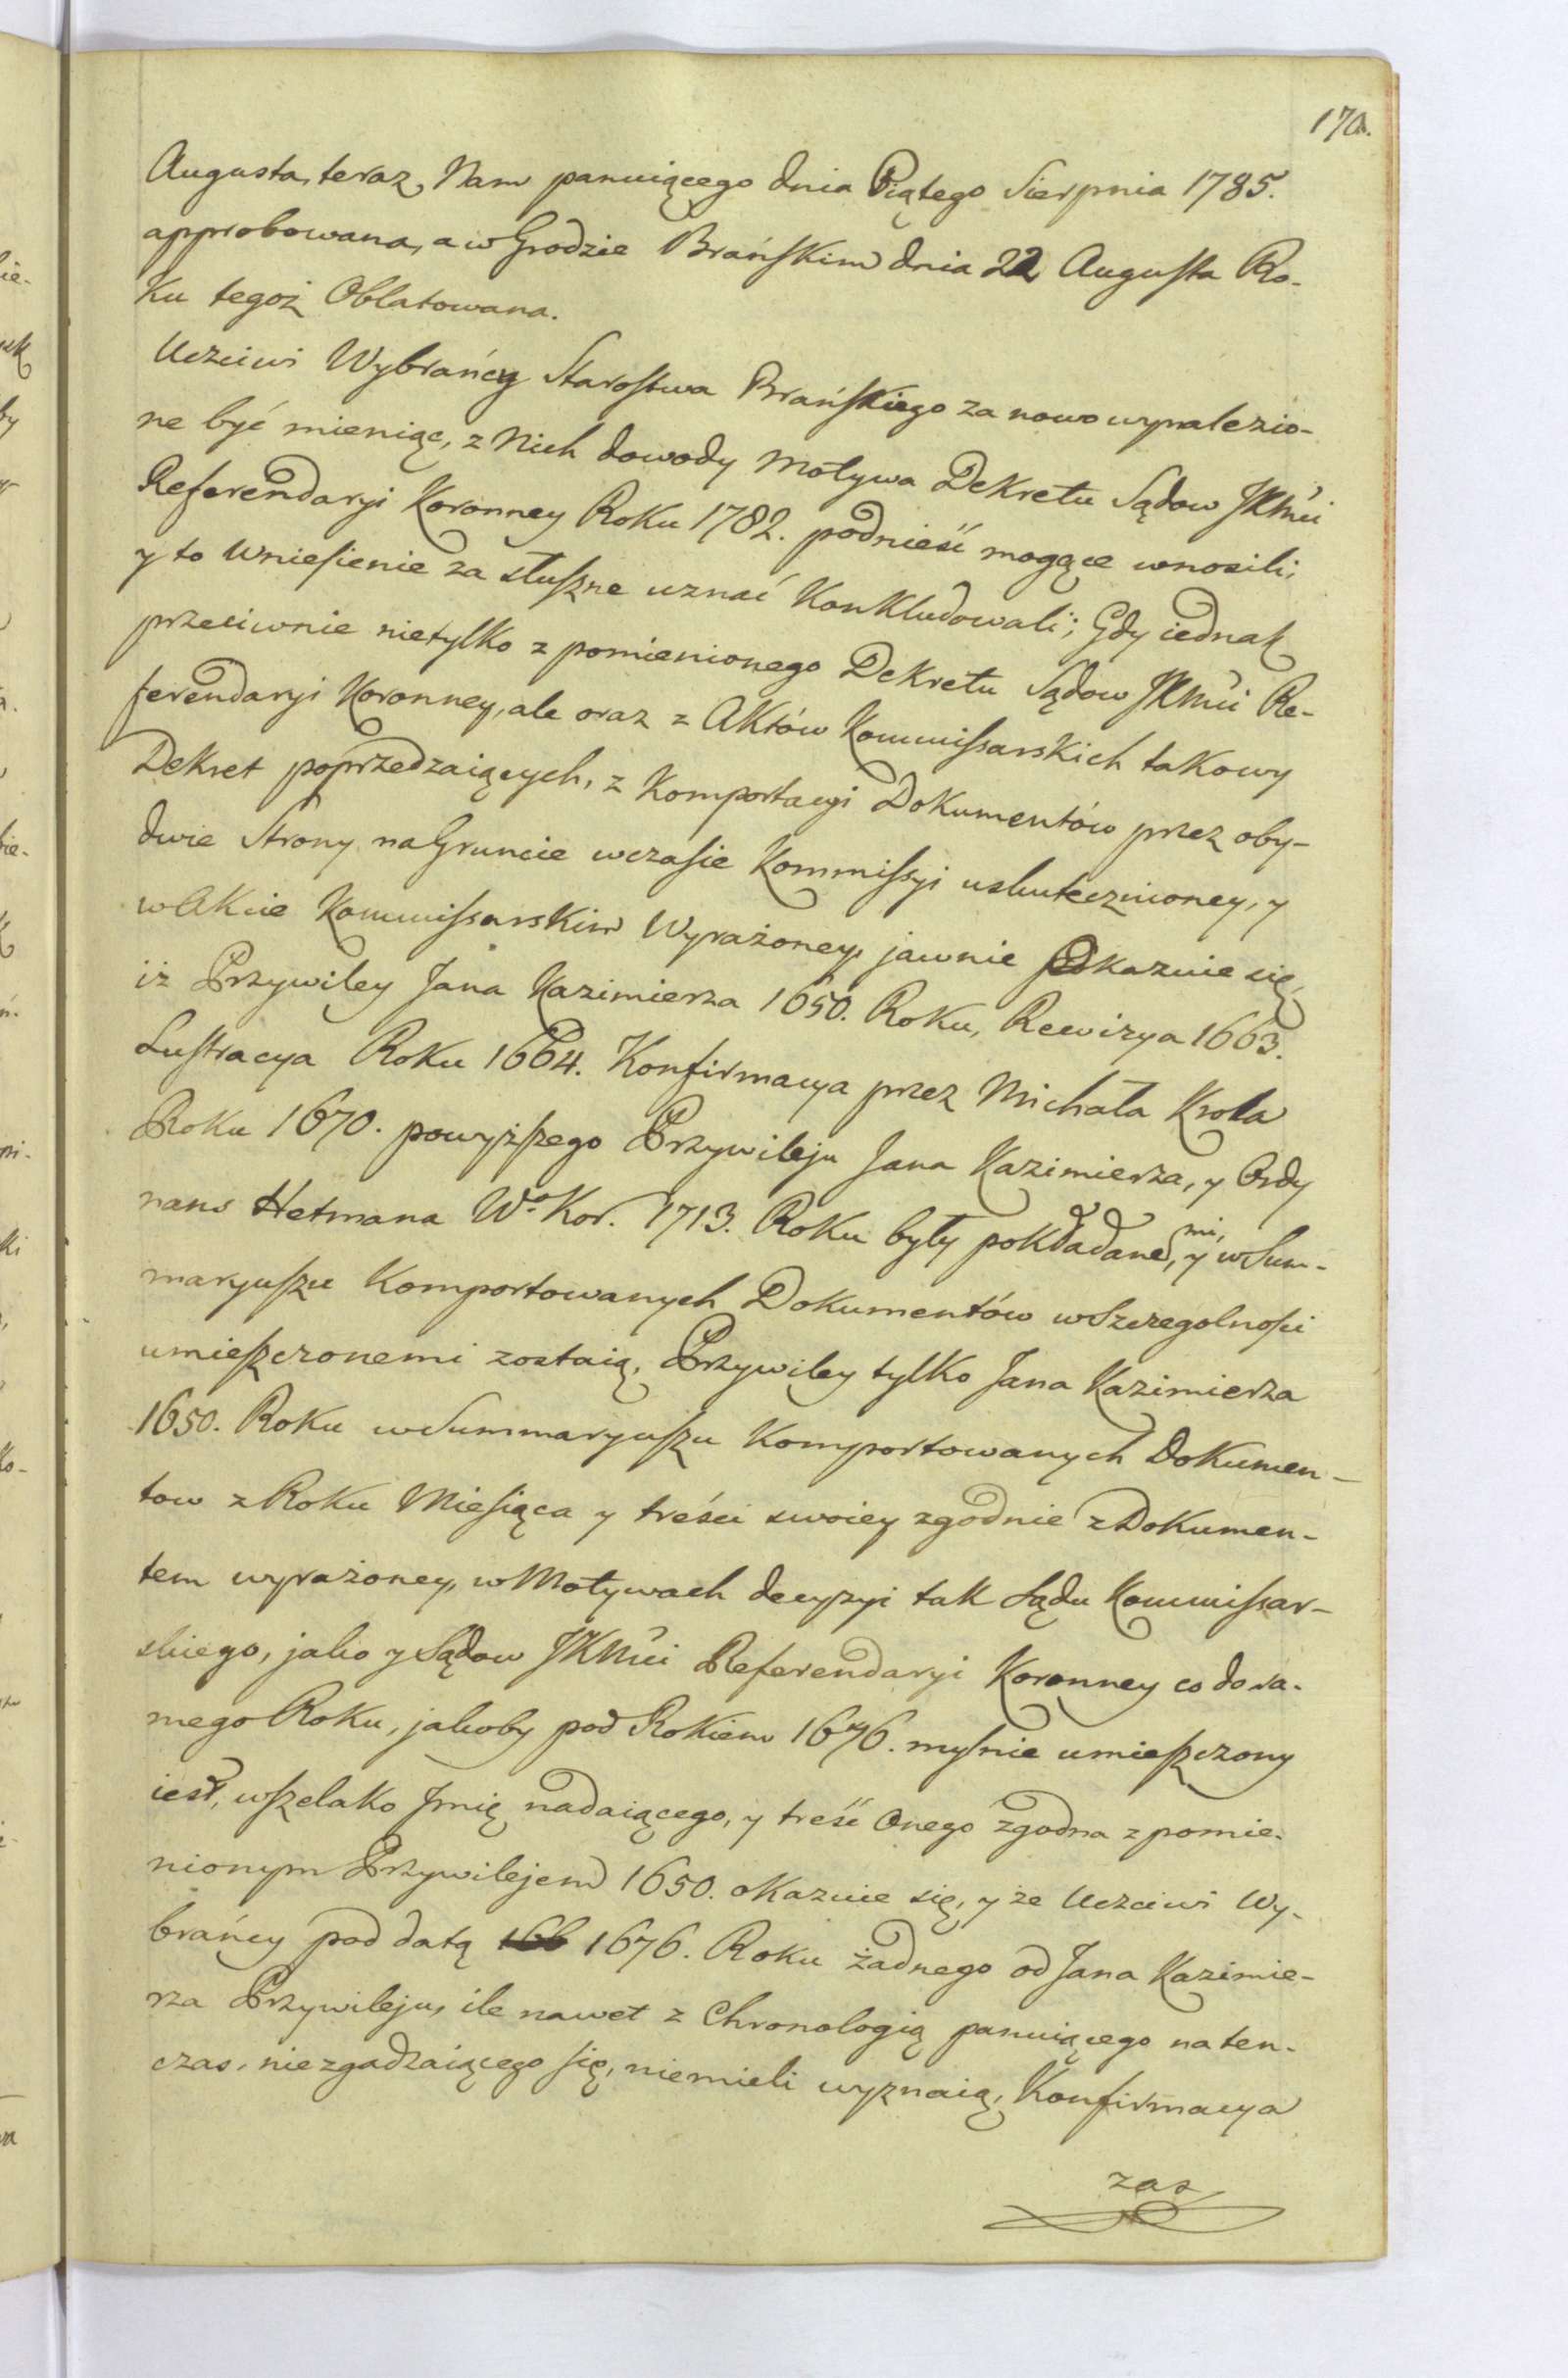 170.
Augusta, teraz, Nam panuiącego dnia Piątego Sierpnia 1785.
approbowana, a w Grodzie Brańskim dnia 22 Augusta Ro-
ku tegoż Oblatowana.
Uczciwi Wybrańcy Starostwa Brańskiego za nowo wynalezio-
ne być mieniąc, z Nich dowody Motywa Dekretu Sądow JKMci
Referendaryi Koronney Roku 1782. podnieść mogące wnosili,
y to Wniesienie za słuszne uznać Konkludowali; Gdy iednak
przeciwnie nietylko z pomienionego Dekretu Sądow JKMci Re-
ferendaryi Koronney, ale oraz z Aktów Kommissarskich takowy
Dekret poprzedzaiących, z Komportacyi Dokumentów przez oby-
dwie Strony na Gruncie w czasie Kommissyi uskutecznioney, y
w Akcie Kommissarskim Wyrażoney, jawnie pokazuie się,
iż Przywiley Jana Kazimierza 1650. Roku, Rewizya 1663.
Lustracya Roku 1664. Konfirmacya przez Michała Krola
Roku 1670. powyższego Przywileju Jana Kazimierza, y Ordy
nans Hetmana Wo Kor. 1713. Roku były pokładanemi, y w Sum-
maryuszu Komportowanych Dokumentów w Szczegolności
umieszczonemi zostaią, Przywiley tylko Jana Kazimierza
1650. Roku w Summaryuszu Komportowanych Dokumen-
tow z Roku Miesiąca y treści swoiey zgodnie z Dokumen-
tem wyrażoney, w Motywach decyzyi tak Sądu Kommissar-
skiego, jako y Sądow JKMci Referendaryi Koronney co do sa-
mego Roku, jakoby pod Rokiem 1676. mylnie umieszczony
iest, wszelako Jmię nadaiącego, y treść Onego zgodna z pomie-
nionym Przywilejem 1650. okazuie się, y że Uczciwi Wy-
brańcy pod datą 166 1676. Roku żadnego od Jana Kazimie-
rza Przywileju, ile nawet z Chronologią panuiącego na ten-
czas, niezgadzaiącego się, niemieli wyznaią, Konfirmacya
zas